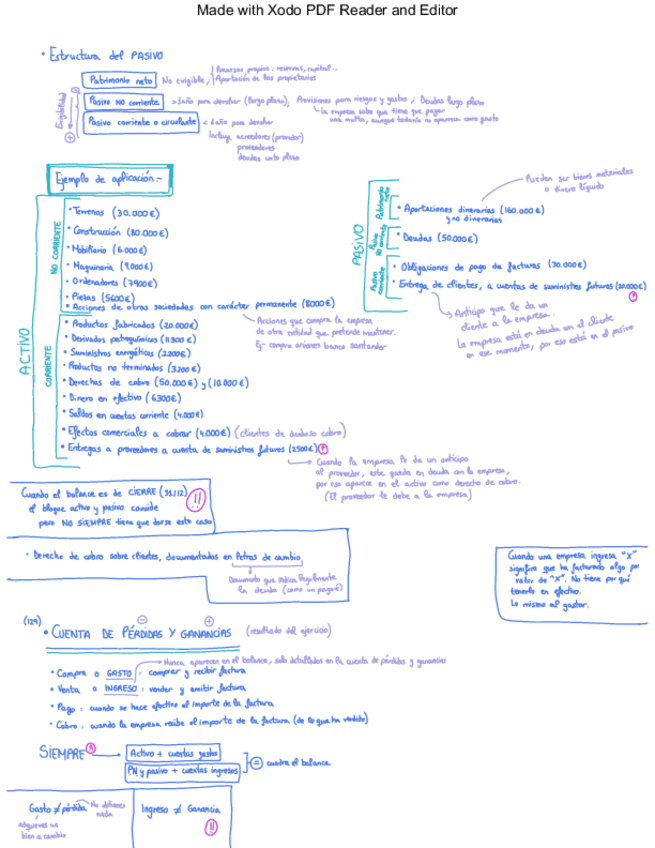 Made with Xodo PDF Reader and Editor
• Estructura del PASIVO
Patrimonio neto No exigible, Recursos propios: reservas, capital...
Aportación de los propietarios
Exigibilidad
Pasivo NO corriente > 1 año para devolver (largo plazo); Provisiones para riesgos y gastos; Deudas largo plazo
La empresa sabe que tiene que pagar
una multa, aunque todavía no aparezca como gasto
Pasivo corriente o circulante < 1 año para devolver
Incluye acreedores (proveedor)
proveedores
deudas corto plazo
Ejemplo de aplicación -
ACTIVO
NO CORRIENTE
• Terrenos (30.000€)
• Construcción (80.000€)
• Mobiliario (6.000€)
• Maquinaria (9.000€)
• Ordenadores (3900€)
• Piezas (5600€)
• Acciones de otras sociedades con carácter permanente (8000€)
Acciones que compra la empresa
de otra entidad que pretende mantener.
Ej- compra acciones banco santander
CORRIENTE
• Productos fabricados (20.000€)
• Derivados petroquímicos (11500€)
• Suministros energéticos (2200€)
• Productos no terminados (3200€)
• Derechos de cobro (50.000€) y (10.000€)
• Dinero en efectivo (6300€)
• Saldos en cuentas corriente (4.000€)
• Efectos comerciales a cobrar (4.000€) (clientes de dudoso cobro)
• Entregas a proveedores a cuenta de suministros futuros (2500€)
Cuando la empresa le da un anticipo
al proveedor, este queda en deuda con la empresa,
por eso aparece en el activo como derecho de cobro.
(El proveedor le debe a la empresa)
PASIVO
Patrimonio neto
• Aportaciones dinerarias (160.000€)
y no dinerarias
Pueden ser bienes materiales
o dinero líquido
Pasivo no corriente
• Deudas (50.000€)
Pasivo corriente
• Obligaciones de pago de facturas (30.000€)
• Entrega de clientes, a cuentas de suministros futuros (10.000€)
Anticipo que le da un
cliente a la empresa.
La empresa está en deuda con el cliente
en ese momento, por eso está en el pasivo
Cuando el balance es de CIERRE (31/12)
el bloque activo y pasivo coincide
pero NO SIEMPRE tiene que darse este caso
!!
• Derecho de cobro sobre clientes, documentados en letras de cambio
Documento que indica legalmente
la deuda (como un pagaré)
Cuando una empresa ingresa "X"
significa que ha facturado algo por
valor de "X". No tiene por qué
tenerlo en efectivo.
Lo mismo al gastar.
(129)
• CUENTA DE PÉRDIDAS Y GANANCIAS (resultado del ejercicio)
Nunca aparecen en el balance, solo detallados en la cuenta de pérdidas y ganancias
• Compra o GASTO: comprar y recibir factura
• Venta o INGRESO: vender y emitir factura
• Pago: cuando se hace efectivo el importe de la factura
• Cobro: cuando la empresa recibe el importe de la factura (de lo que ha vendido)
SIEMPRE
Activo + cuentas gastos
PN y pasivo + cuentas ingresos
= cuadra el balance
Gasto ≠ pérdida No obtienes
nada
adquieres un
bien a cambio
Ingreso ≠ Ganancia
!!